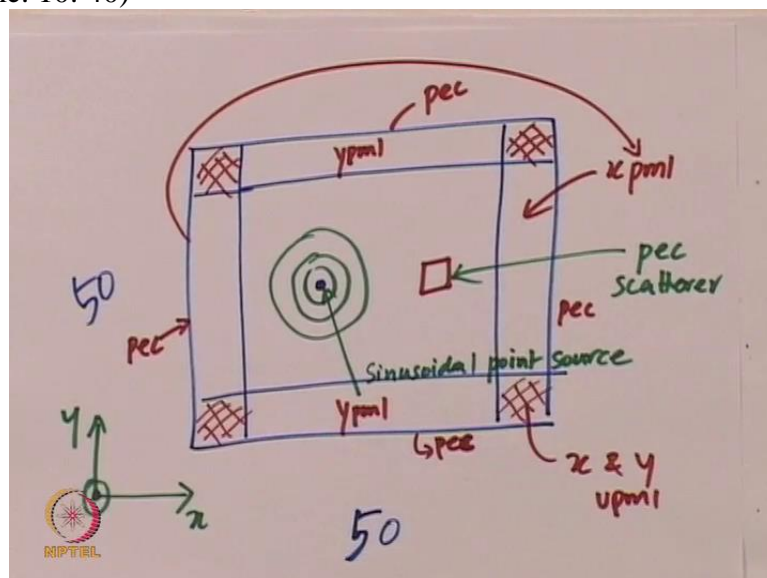 pec
ypml
x pml
pec
scatterer
50
pec
pec
sinusoidal point source
ypml
↳pec
x & y
upml
y
x
NPTEL
50